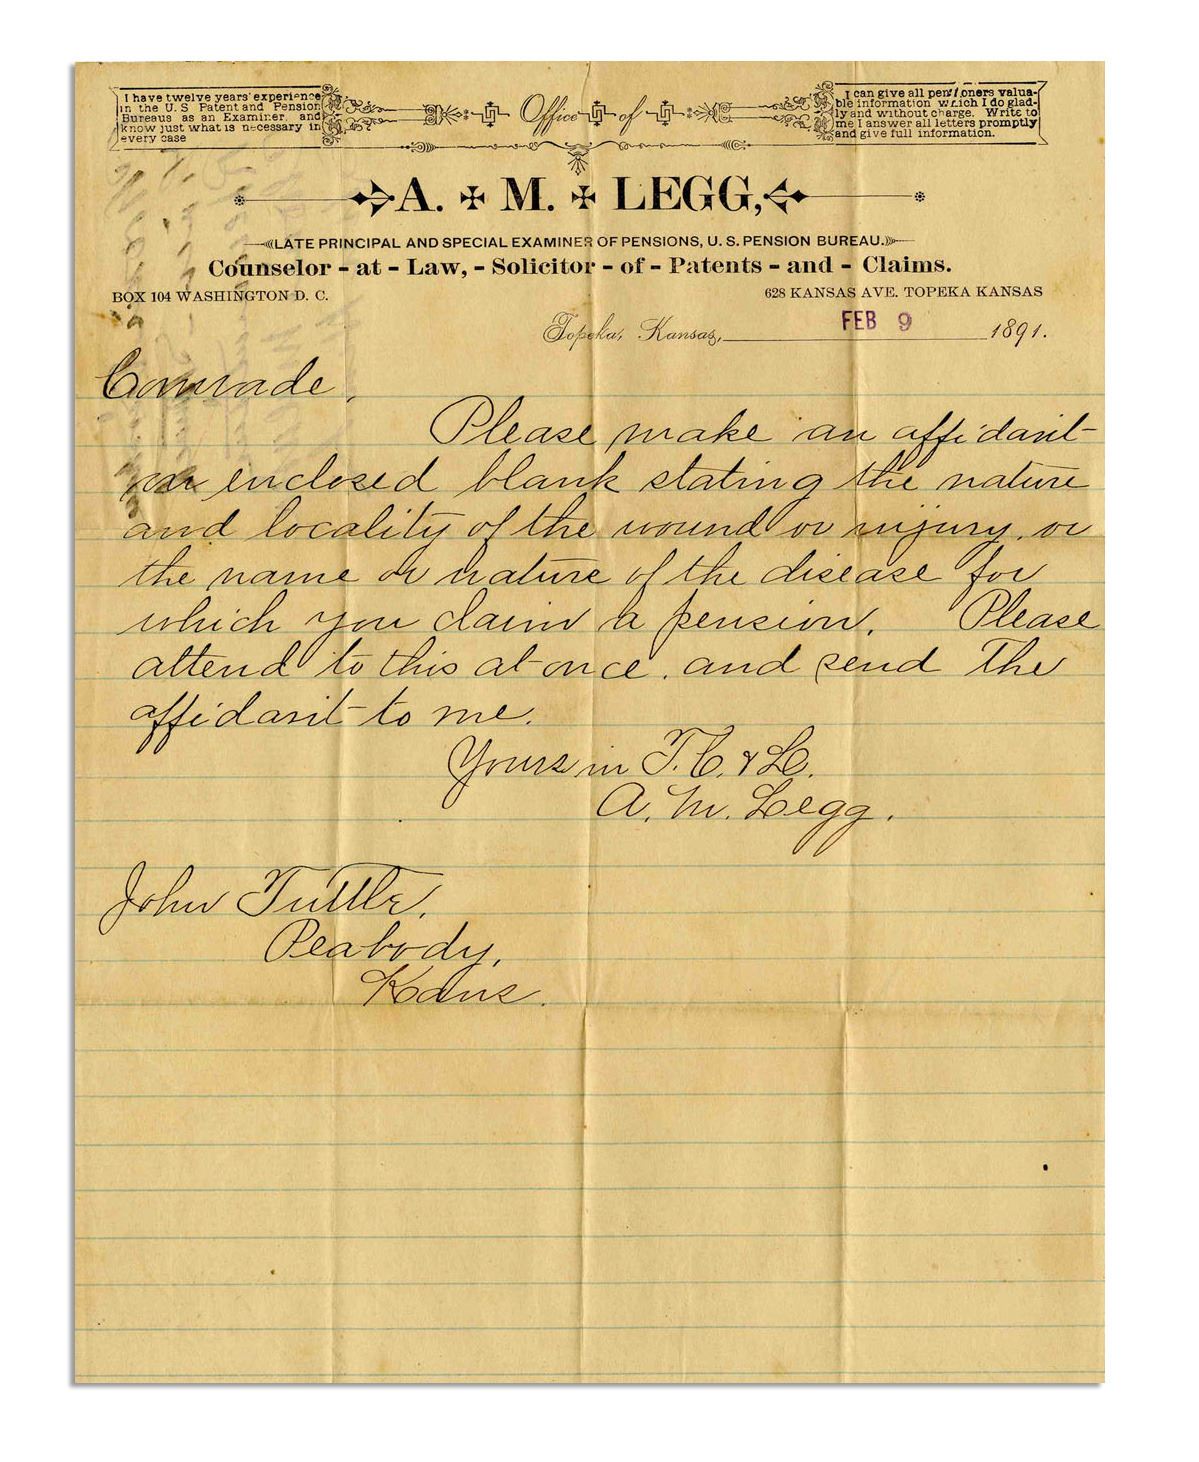 I have twelve years' experience
in the U. S Patent and Pension
Bureaus as an Examiner, and
know just what is necessary in
every case
Office of
I can give all pensioners valua-
ble information which I do glad-
ly and without charge. Write to
me I answer all letters promptly
and give full information.
A. M. LEGG,
LATE PRINCIPAL AND SPECIAL EXAMINER OF PENSIONS, U. S. PENSION BUREAU.
Counselor - at - Law, - Solicitor - of - Patents - and - Claims.
BOX 104 WASHINGTON D. C.
628 KANSAS AVE. TOPEKA KANSAS
Topeka, Kansas, FEB 9 1891.
Comrade.
Please make an affidavit
on enclosed blank stating the nature
and locality of the wound or injury, or
the name or nature of the disease for
which you claim a pension. Please
attend to this at once. and send the
affidavit to me.
Yours in F. C. & L.
A. M. Legg.
John Tuttle,
Peabody,
Kans.